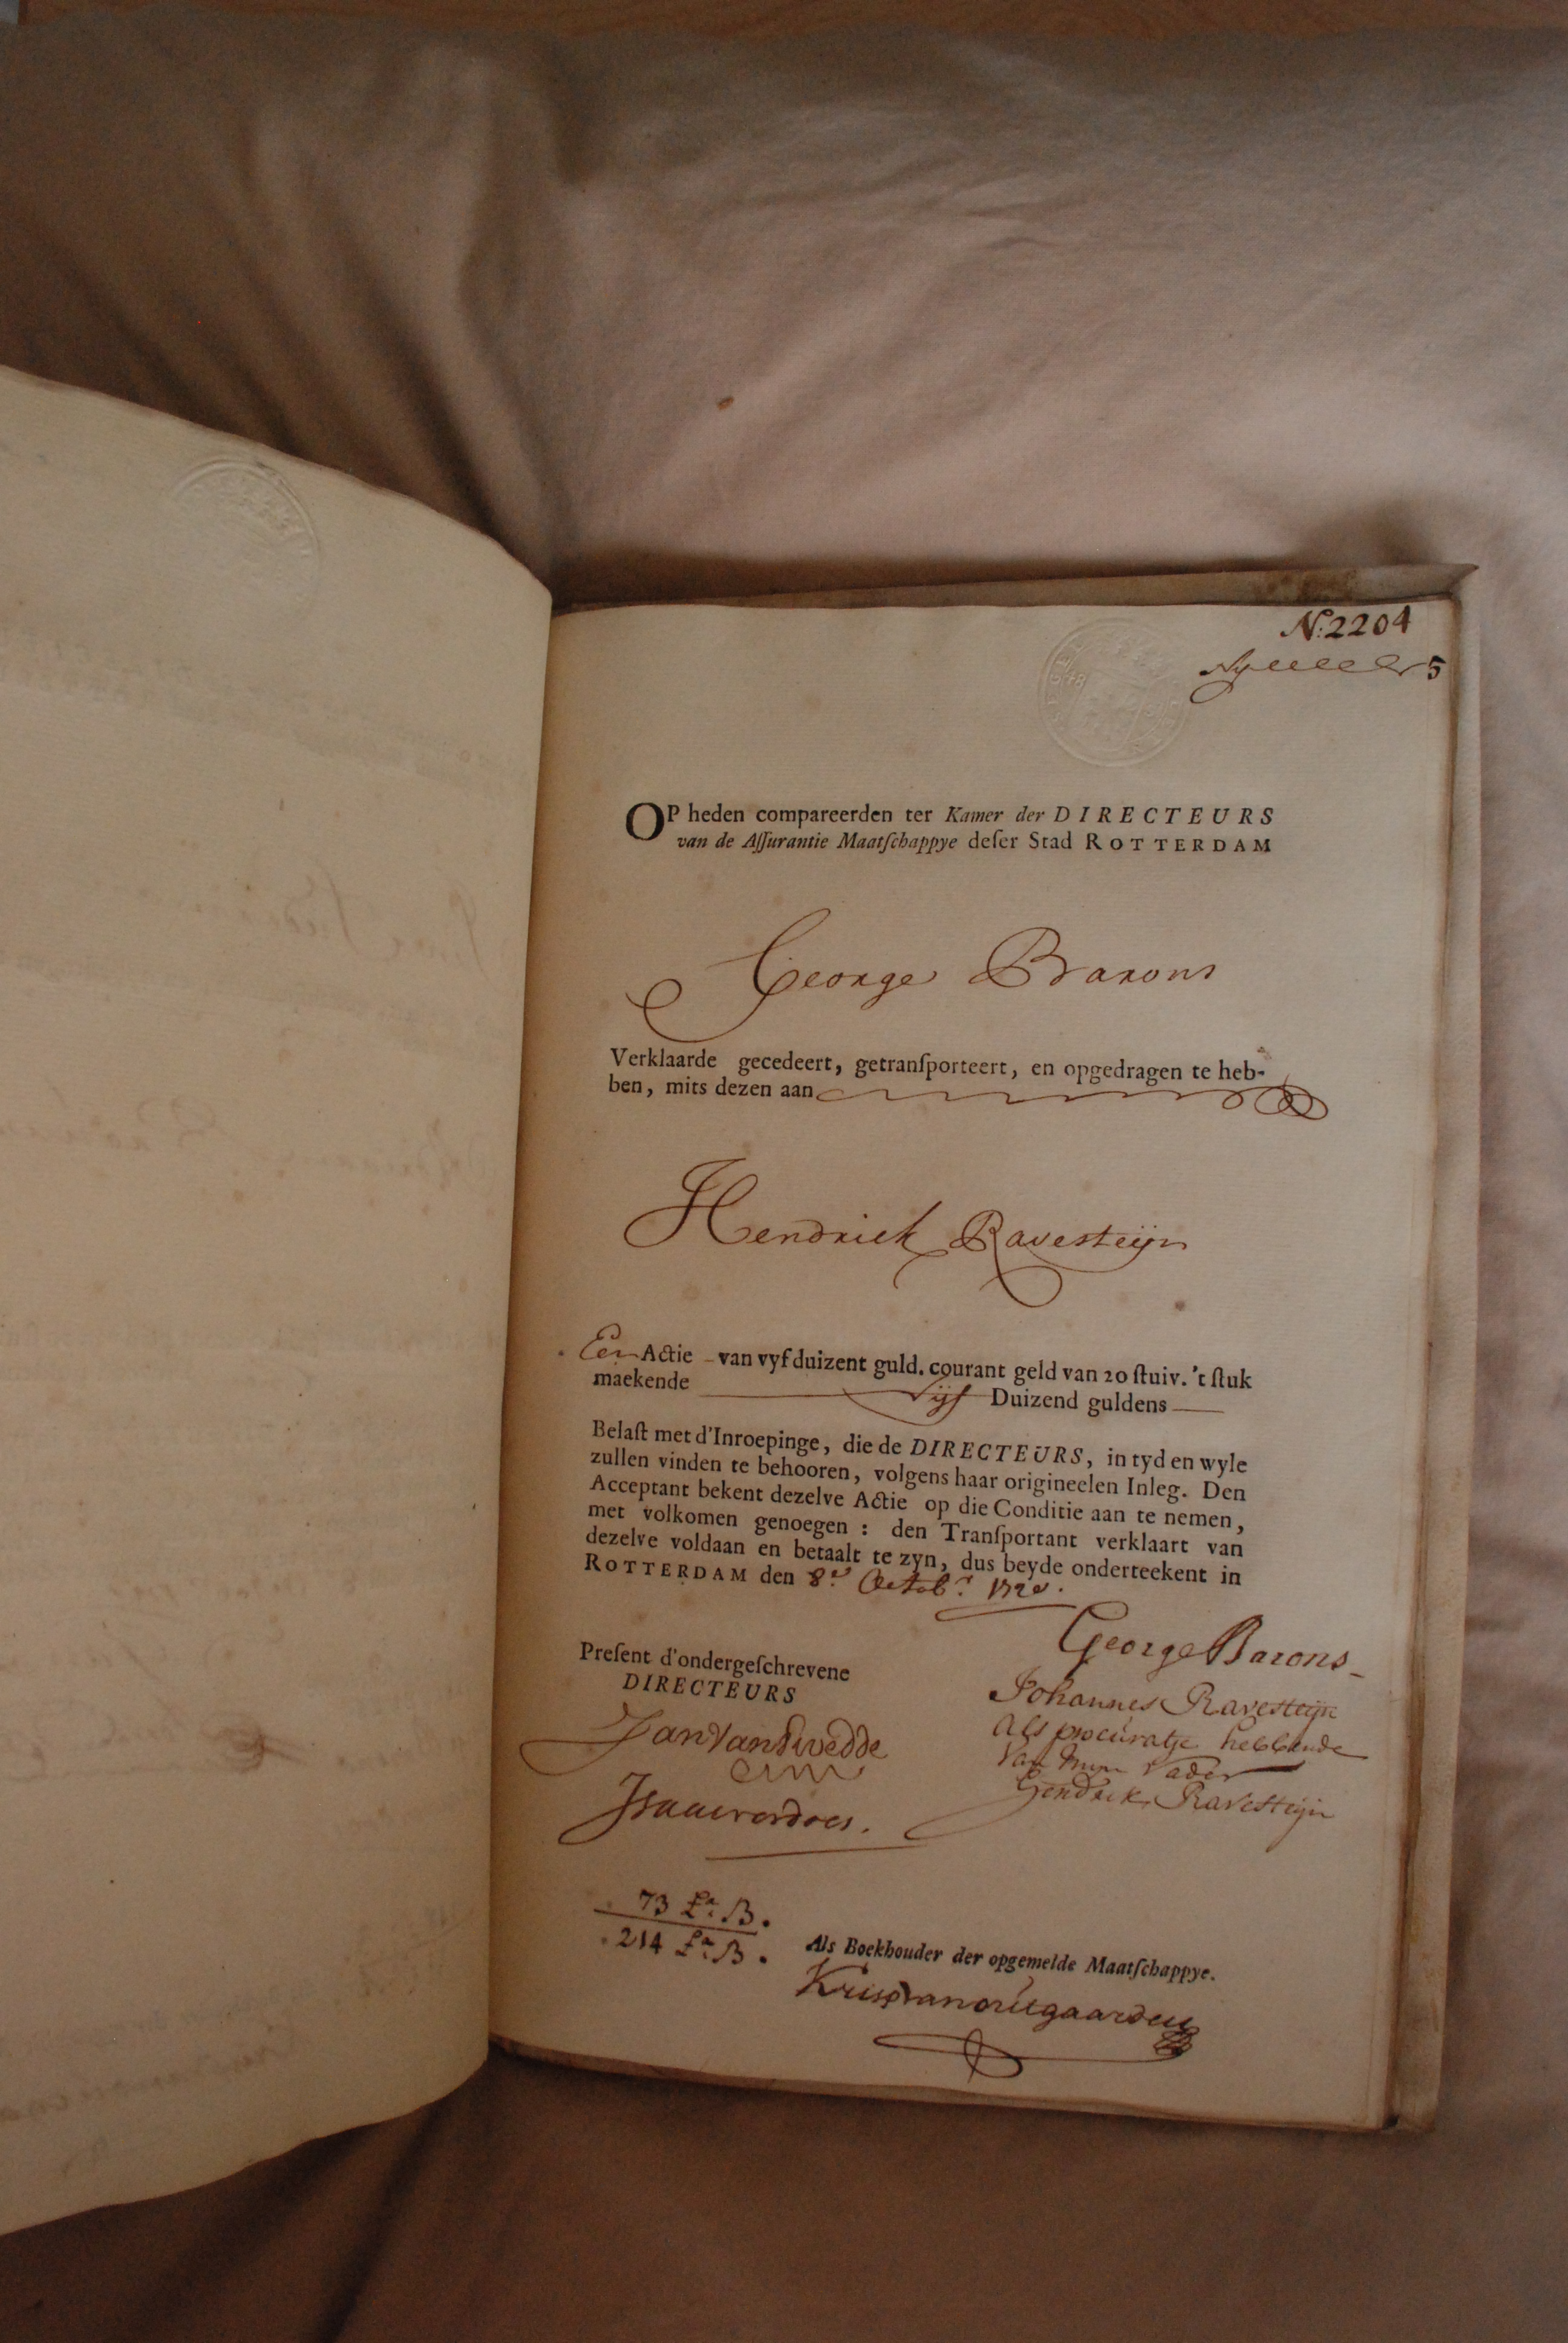 N:2204
5
OP heden compareerden ter Kamer der DIRECTEURS
van de Aſſurantie Maatſchappye deſer Stad ROTTERDAM
George Barons
Verklaarde gecedeert, getranſporteert, en opgedragen te heb-
ben, mits dezen aan
Hendrick Ravesteijn
Een Actie van vyf duizent guld. courant geld van 20 ſtuiv. 't ſtuk
maekende Vijf Duizend guldens
Belaſt met d'Inroepinge, die de DIRECTEURS, in tyd en wyle
zullen vinden te behooren, volgens haar origineelen Inleg. Den
Acceptant bekent dezelve Actie op die Conditie aan te nemen,
met volkomen genoegen : den Tranſportant verklaart van
dezelve voldaan en betaalt te zyn, dus beyde onderteekent in
ROTTERDAM den 8e. Octobr. 1720.
George Barons
Preſent d'ondergeſchrevene
DIRECTEURS
Johannes Ravesteijn
als procuratje hebbende
Van mijn Vader
Hendrik Ravesteijn
73 La. B.
214 La. B.
Als Boekhouder der opgemelde Maatſchappye.